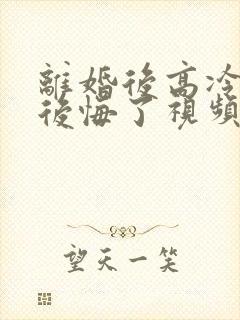 離婚後高冷
後悔了視頻
望天一笑